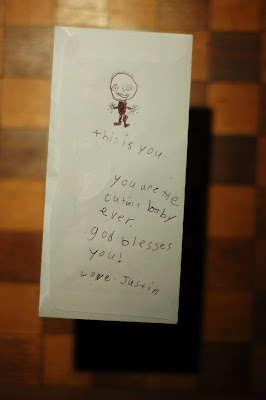 this is you.
you are the
cutist baby
ever.
god blesses
you!
Love. Justin